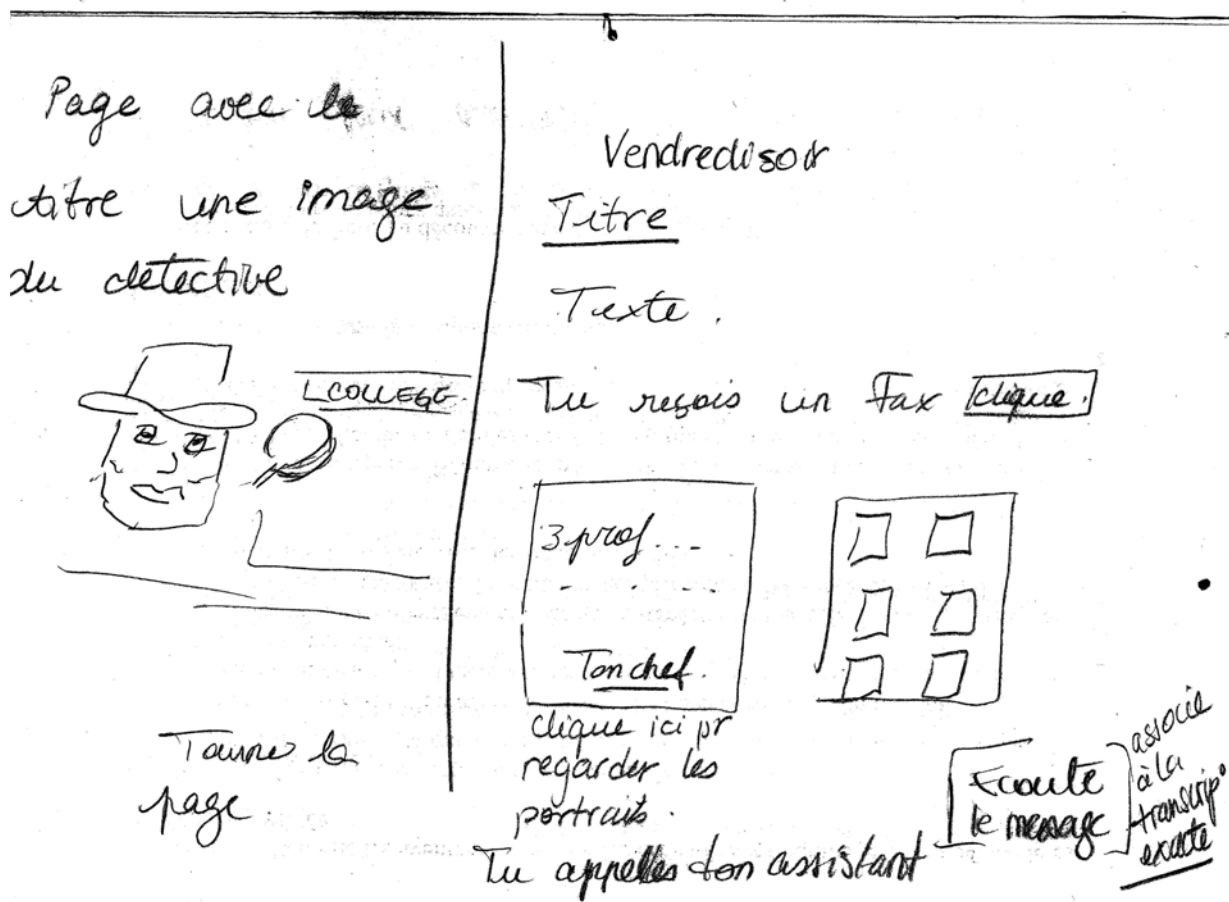 Page avec le
titre une image
du detective
COLLEGE
Tourne la
page
Vendredi soir
Titre
Texte.
Tu reçois un fax clique.
3 prof...
Ton chef.
clique ici pr
regarder les
portraits.
Tu appelles ton assistant
Ecoute
le message
associe
à la
transcrip°
exacte